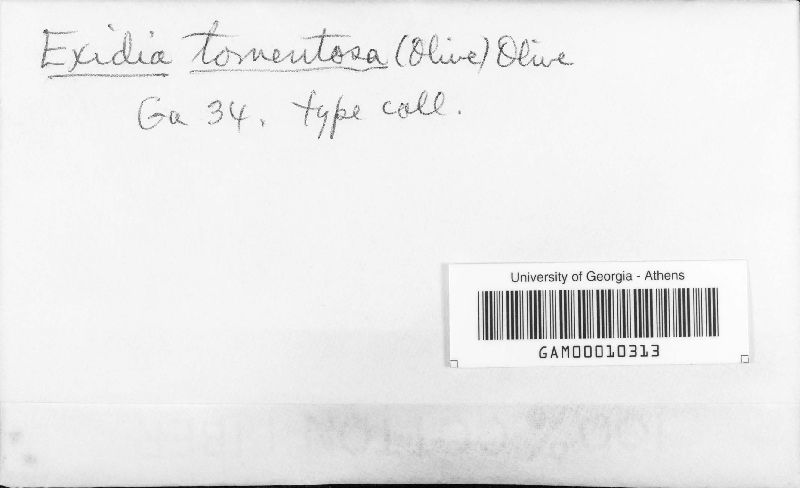 Exidia tomentosa (Olive) Olive
Ga 34. type coll.
University of Georgia - Athens
GAM00010313